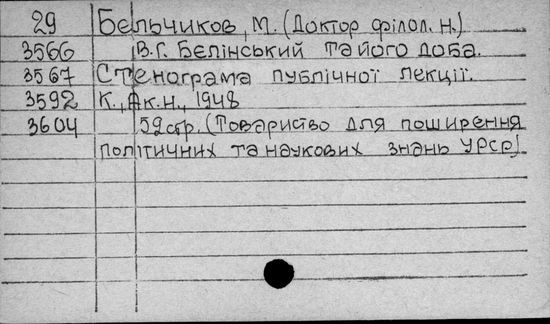 29 Бельчиков, М. (Доктор філол. н.)
3566 В.Г. Бєлінський та його доба.
3567 Стенограма публічної лекції.
3592 К., Ак.н., 1948
3604 52 стр. (Товариство для поширення
політичних та наукових знань УРСР)